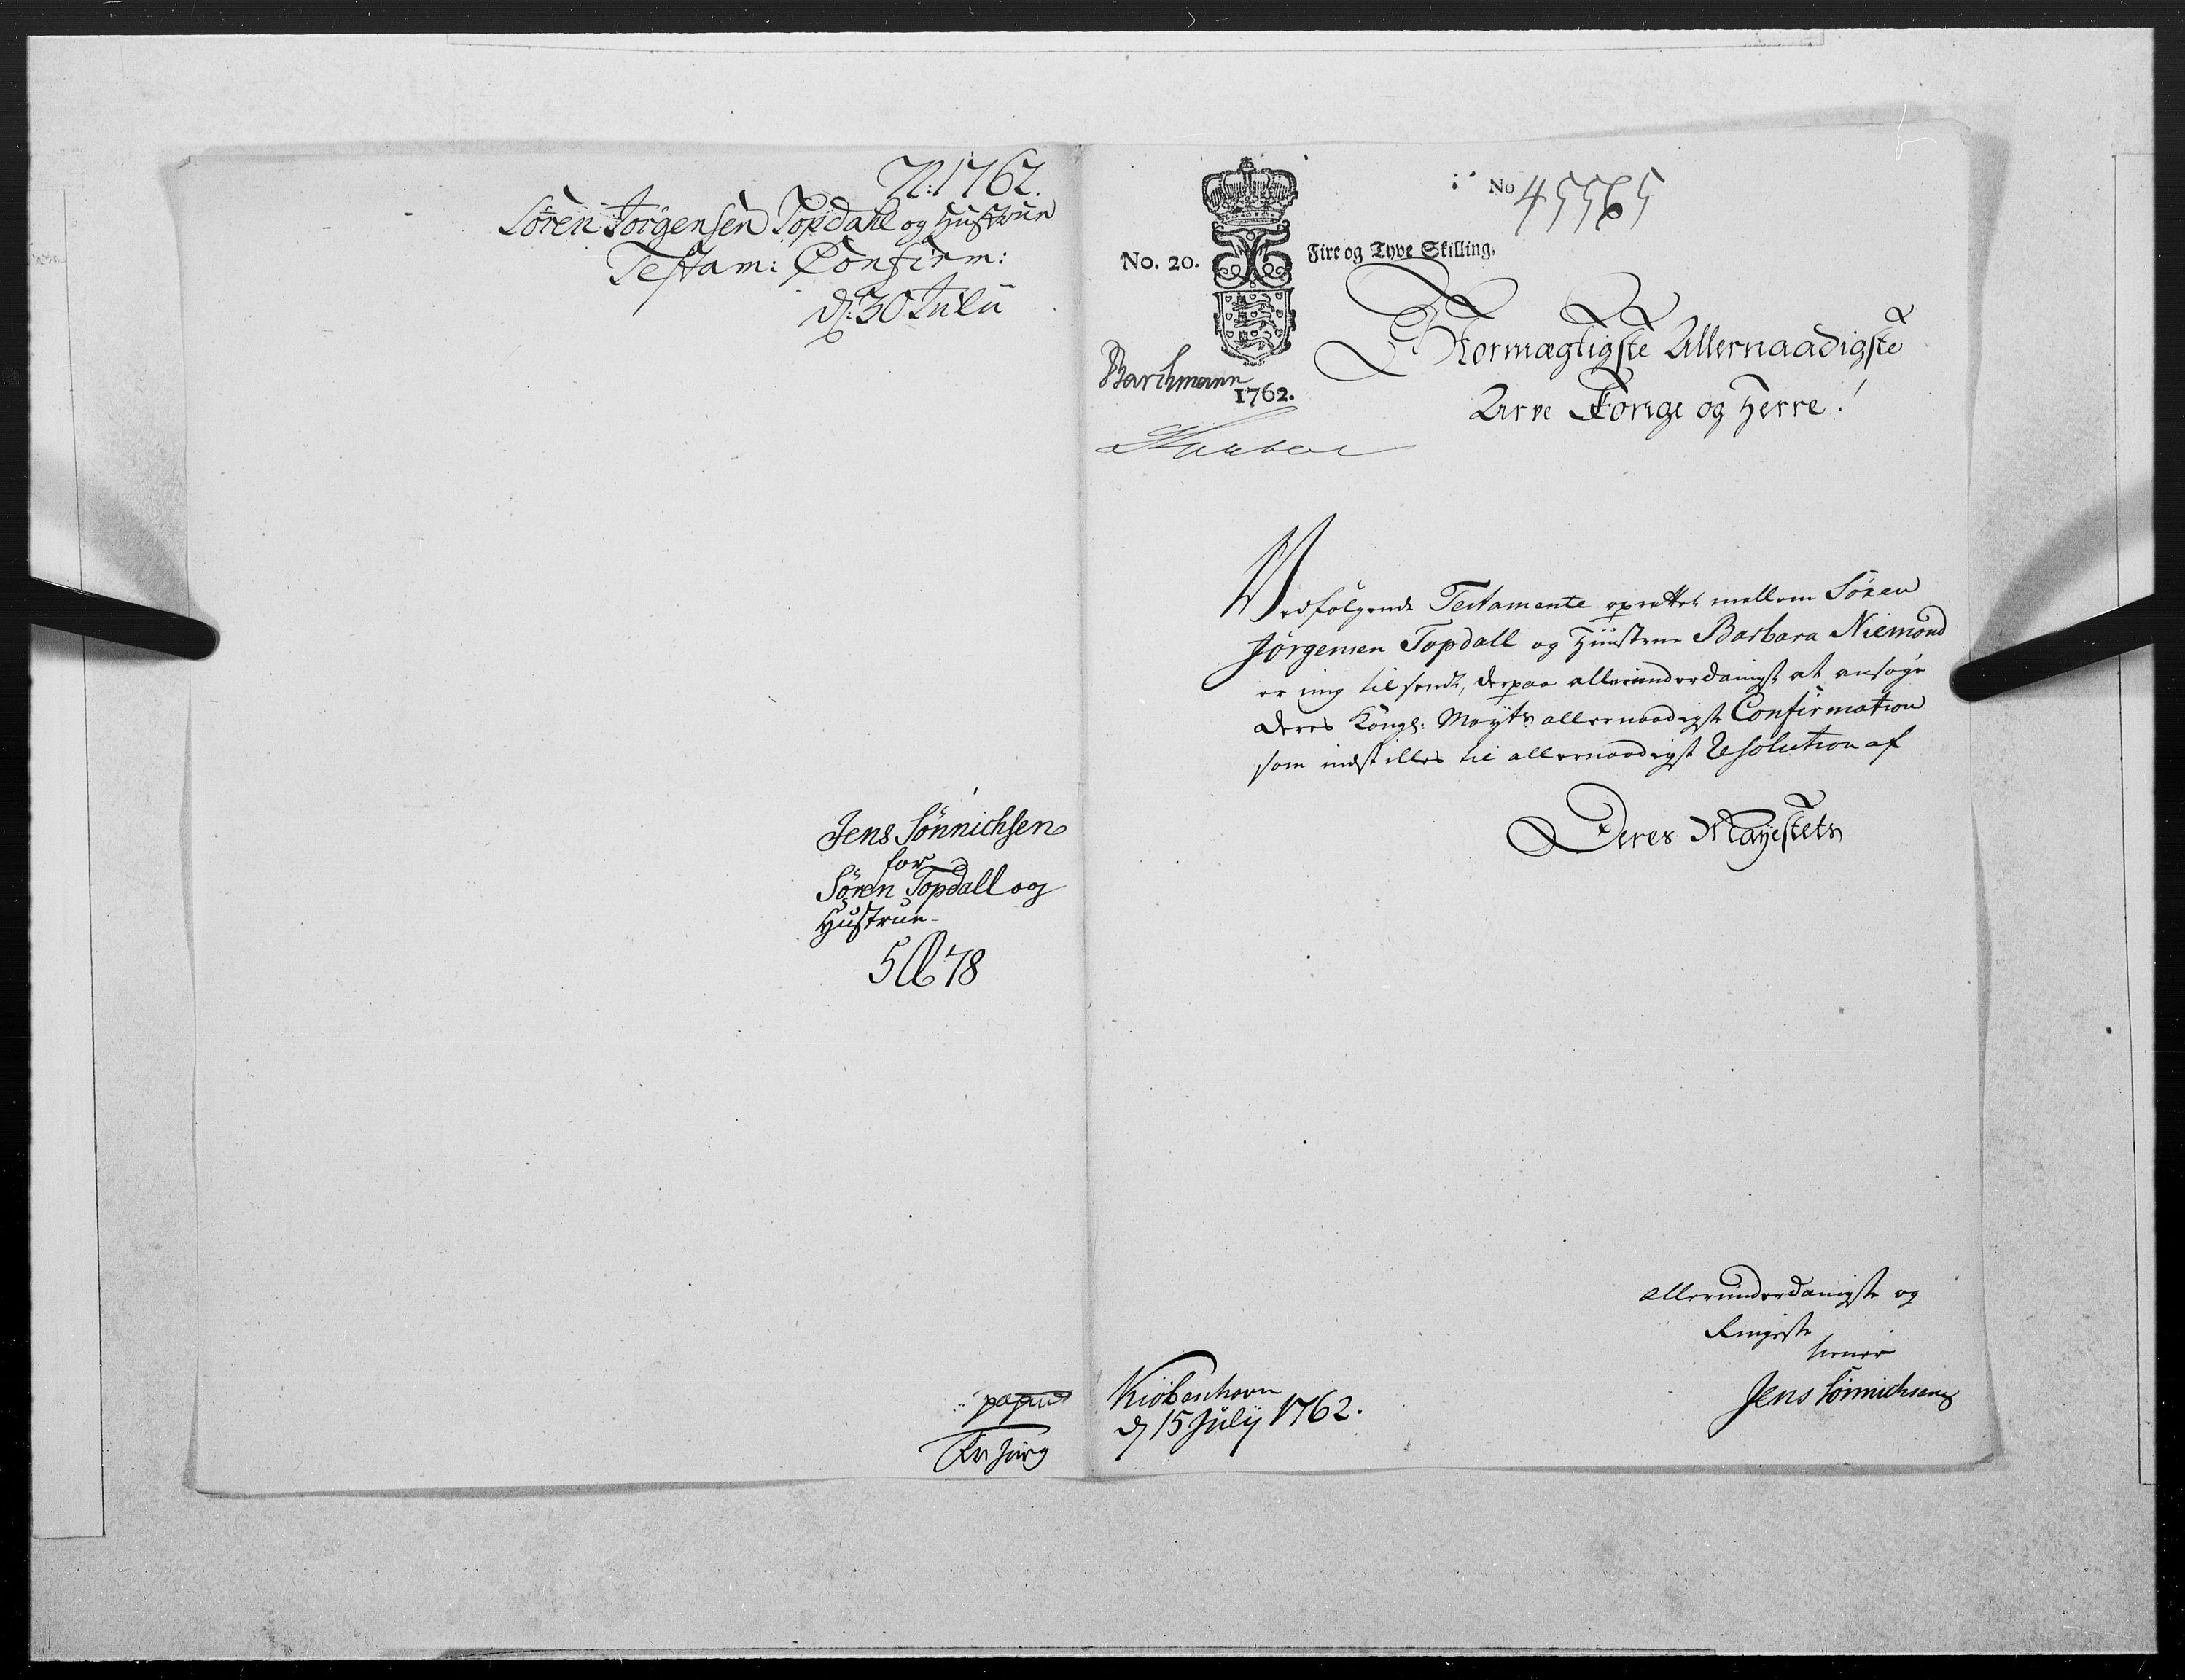 N: 1762.
Sören Jörgensen Topdahl og Hustrue
Testam: Confirm:
d: 30 Julii
Jens Sönnichsen
for
Sören Topdall og
Hustrue
578
No 45565
No. 20.
Fire og Tyve Skilling.
Barchmann
1762.
Stormægtigste Allernaadigste
Arve Konge og Herre!
Vedfölgende Testamente oprettet mellem Sören
Jörgensen Topdall og Hustrue Barbara Niemond
er mig tilsendt, derpaa allerunderdanigst at ansöge
Deres Kongl: Mayts allernaadigste Confirmation
som indstilles til allernaadigst Resolution af
Deres Mayestets
allerunderdanigste og
Ringeste
tiener
Jens Sönnichsen
Kiöbenhavn
d 15 Julij 1762.